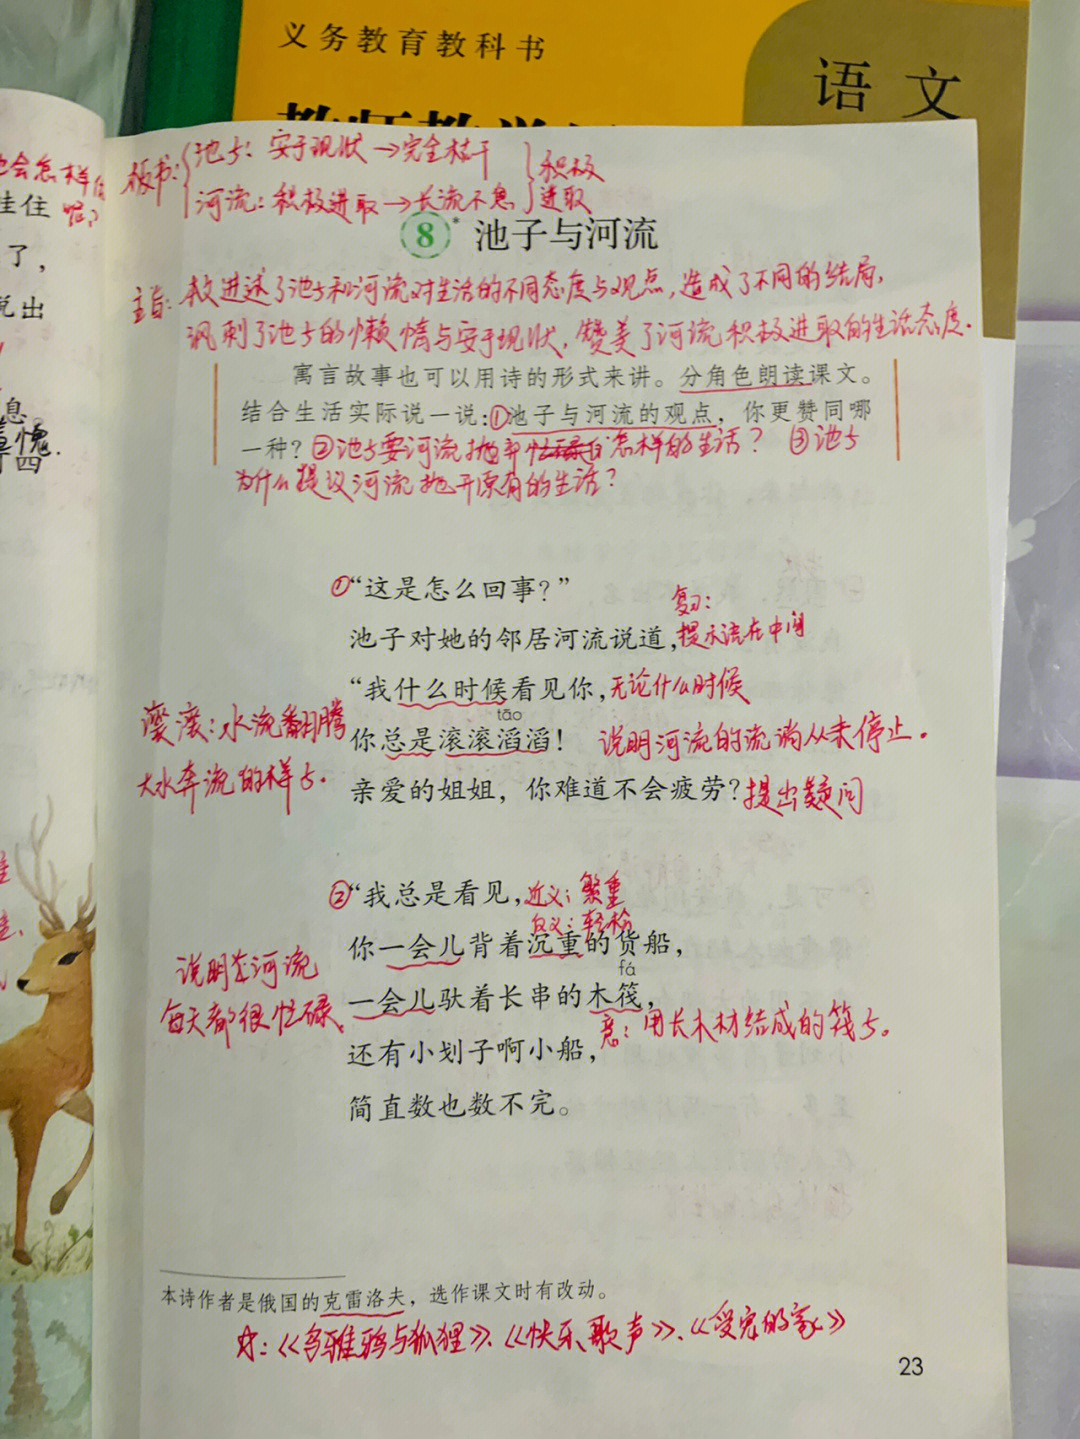 义务教育教科书
语文
也会怎样
挂住
呢?
了，
说出
息
愧.
四
板书:
池子: 安于现状→完全枯干
河流: 积极进取→长流不息
积极
进取
8* 池子与河流
主旨: 本文讲述了池子和河流对生活的不同态度与观点,造成了不同的结局,
讽刺了池子的懒惰与安于现状,赞美了河流积极进取的生活态度.
寓言故事也可以用诗的形式来讲。分角色朗读课文。
结合生活实际说一说:①池子与河流的观点，你更赞同哪
一种? ②池子要河流抛弃怎样的生活? ③池子
为什么提议河流抛开原有的生活?
①“这是怎么回事?”
复习:
池子对她的邻居河流说道,提示语在中间
“我什么时候看见你,无论什么时候
tāo
滚滚:水流翻腾
你总是滚滚滔滔! 说明河流的流淌从未停止.
大水奔流的样子.
亲爱的姐姐，你难道不会疲劳?提出疑问
②“我总是看见,近义:繁重
反义:轻松
你一会儿背着沉重的货船，
说明在河流
fá
一会儿驮着长串的木筏，
每天都很忙碌、
意:用长木材结成的筏子。
还有小划子啊小船，
简直数也数不完。
本诗作者是俄国的克雷洛夫，选作课文时有改动。
《乌鸦与狐狸》、《快乐歌声》、《受宠的象》
23